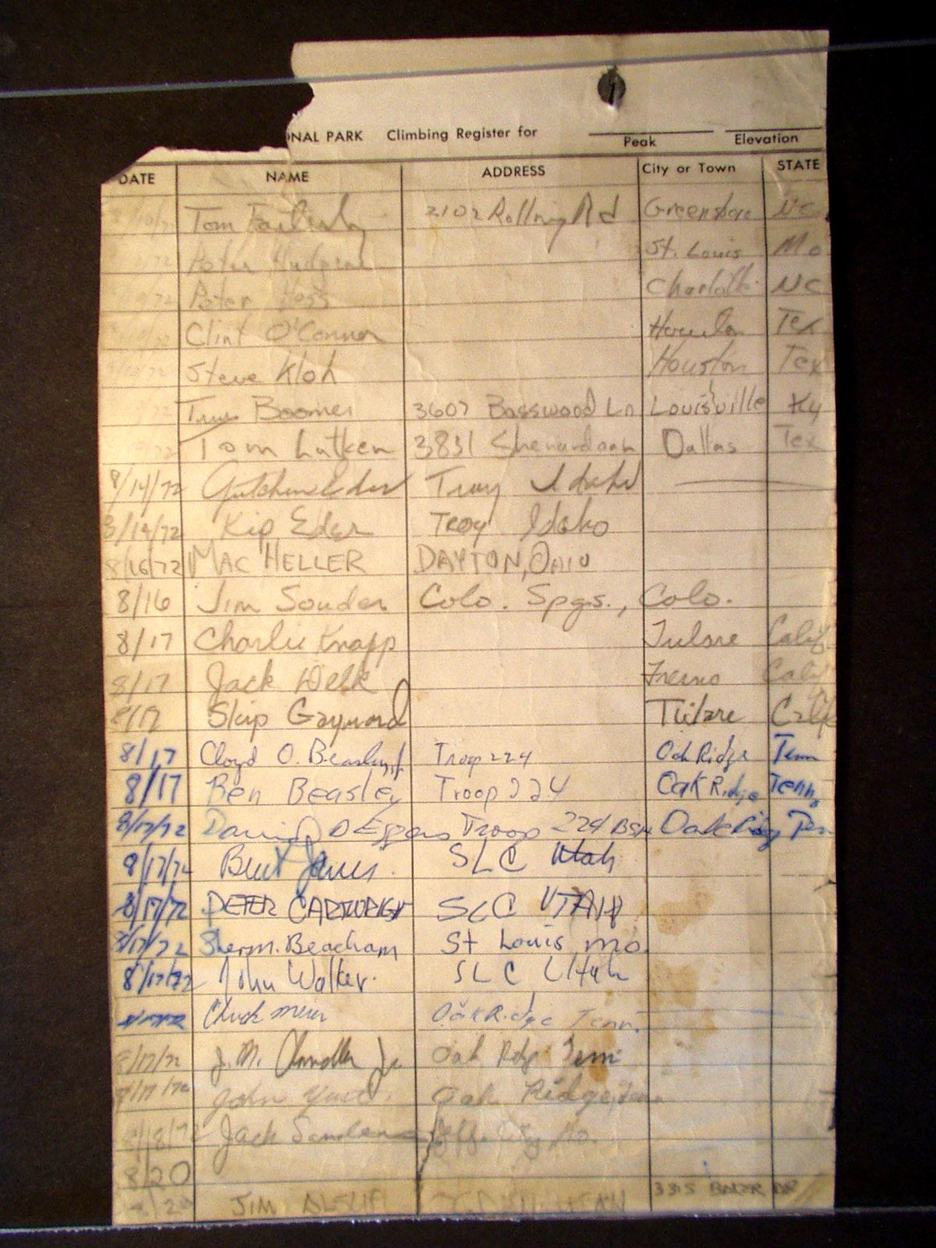 ONAL PARK Climbing Register for
Peak Elevation
DATE NAME ADDRESS City or Town STATE
Tom 2102 Rolling Rd Greensboro NC
Peter St. Louis Mo
Peter Hess Charlotte NC
Clint O'Connor Houston Tex
Steve Kloh Houston Tex
Boomer 3607 Basswood Ln Louisville Ky
Tom Lutken 3831 Shenandoah Dallas Tex
8/14/72 Troy Idaho
8/14/72 Kip Eder Troy Idaho
8/16/72 MAC HELLER DAYTON, OHIO
8/16 Jim Souder Colo. Spgs., Colo.
8/17 Charlie Knapp Tulare Calif.
8/17 Jack Welk Fresno Calif
8/17 Skip Gaynard Tulare Calif
8/17 Cloyd O. Beasley Jr. Troop 224 Oak Ridge Tenn
8/17 Ben Beasley Troop 224 Oak Ridge Tenn.
8/17/72 David D Troop 224 BSA Oak Ridge
8/17/72 SLC Utah
8/17/72 PETER CARTWRIGHT SLC UTAH
8/17/72 Sherm. Beacham St Louis, mo.
8/17/72 John Walker. SLC Utah
Chuck Oak Ridge Tenn.
8/17/72 J. M. Chandler Jr Oak Rdg Tenn
8/17/72 John Oak Ridge, Tenn
8/18/72 Jack
8/20
JIM 3315